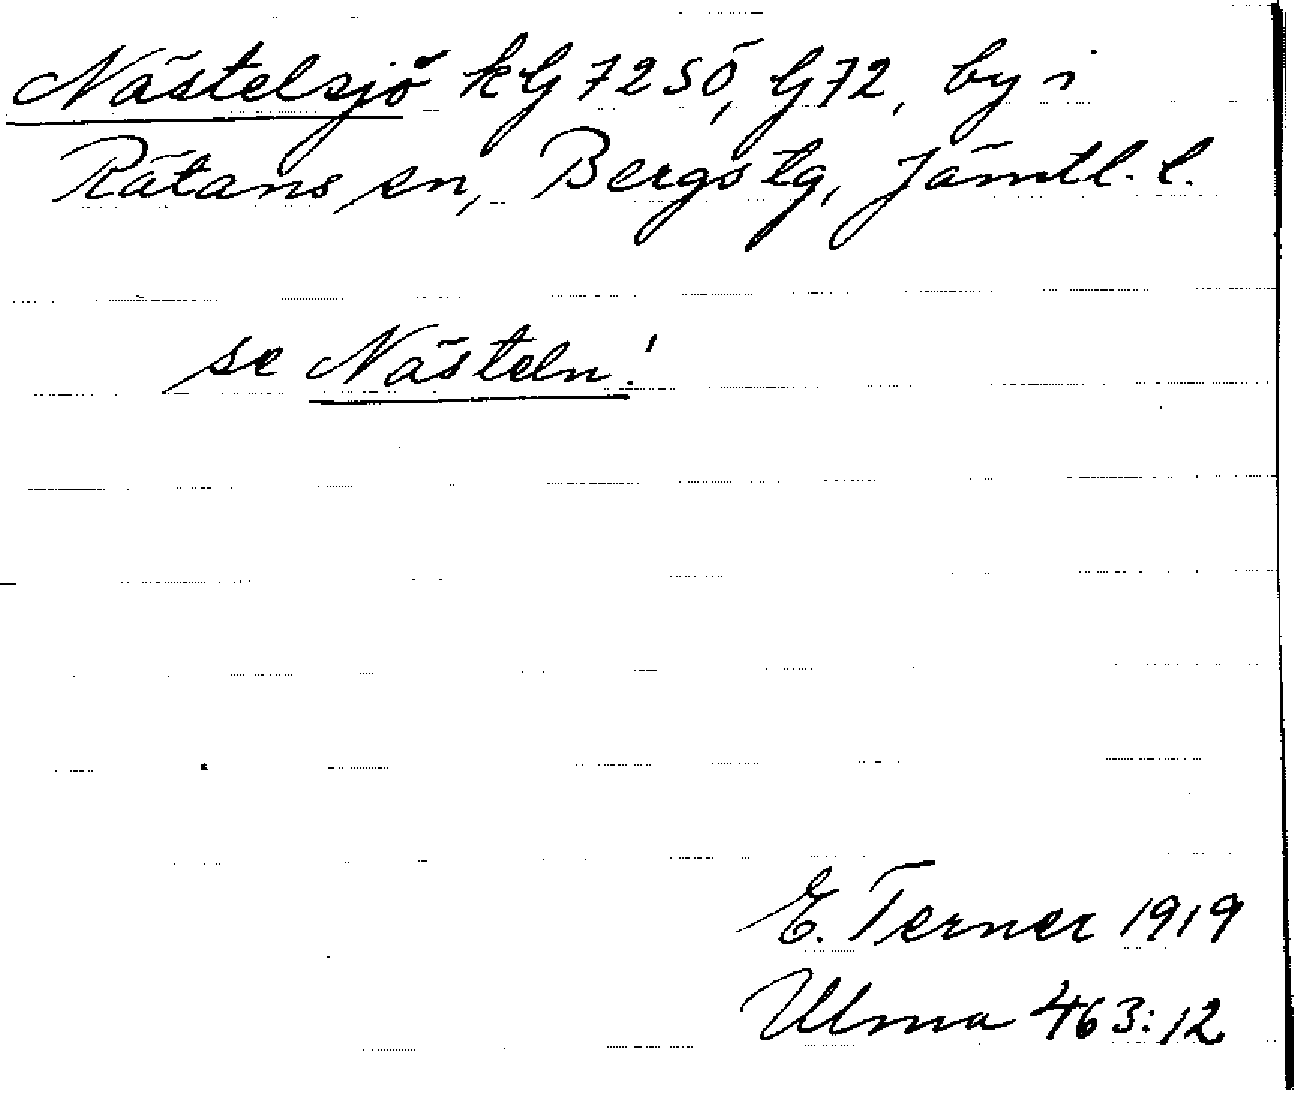 Nästelsjö kG 72 SÖ, G72, by i
Rätans sn, Bergs tg, Jämtl. l.
se Nästeln!
E. Terner 1919
Ulma 463:12